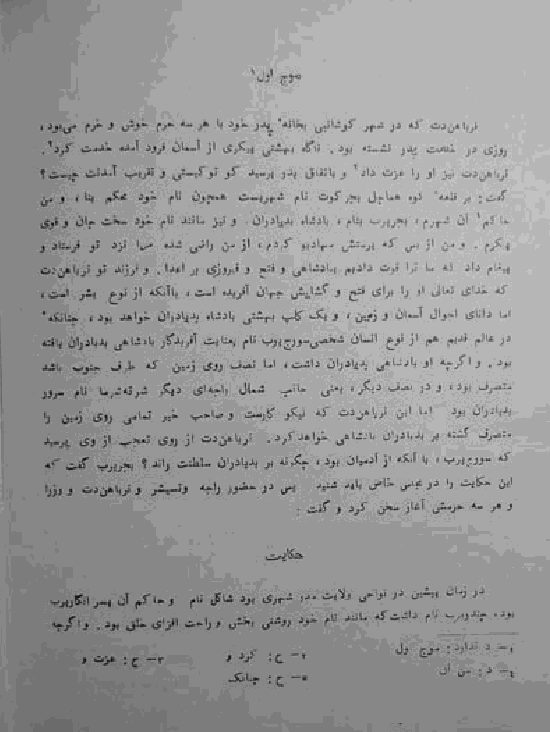 موج اول¹
نرباهن‌دت که در شهر کوشانبی بخانهٔ پدر خود با هر سه حرم خوش و خرم می‌بود،
روزی در خدمت پدر نشسته بود. ناگاه بهشتی پیکری از آسمان فرود آمده خدمت کرد².
نرباهن‌دت نیز او را عزت داد³ و باتفاق پدر پرسید کو توکیستی و تقریب آمدنت چیست؟
گفت: بر قلعهٔ کوه هماچل بجرکوت نام شهریست همچون نام خود محکم بنا، و من
حاکم⁴ آن شهرم، بجرپرب بنام، بادشاه بدیادران. و نیز مانند نام خود سخت جان و قوی
پیکرم. و من از بس که پرستش مهادیو کردم، از من راضی شده مرا نزد تو فرستاد و
پیغام داد که ما ترا قوت دادیم ببادشاهی و فتح و فیروزی بر اعدا. و فرزند تو نرباهن‌دت
که خدای تعالی او را برای فتح و گشایش جهان آفریده است، باآنکه از نوع بشر است،
اما دانای احوال آسمان و زمین، و یک کلپ بهشتی بادشاه بدیادران خواهد بود، چنانکه⁵
در عالم قدیم هم از نوع انسان شخصی سورج‌پرب نام بعنایت آفریدگار بادشاهی بدیادران یافته
بود. و اگرچه او بادشاهی بدیادران داشت، اما نصف روی زمین که طرف جنوب باشد
متصرف بود، و در نصف دیگر، یعنی جانب شمال راجه‌ای دیگر شرته‌شرما نام سرور
بدیادران بود. اما این نرباهن‌دت که نیکو کارست و صاحب خیر تمامی روی زمین را
متصرف گشته بر بدیادران بادشاهی خواهد کرد. نرباهن‌دت از روی تعجب از وی پرسید
که سورج‌پرب، با آنکه از آدمیان بود، چگونه بر بدیادران سلطنت راند؟ بجرپرب گفت که
این حکایت را در مجلس خاص باید شنید. پس در حضور راجه و نرباهن‌دت و وزرا
و هر سه حرمش آغاز سخن کرد و گفت:
حکایت
در زمان پیشین در نواحی ولایت مدر شهری بود شاکل نام و حاکم آن پسر انگارپرب
بود، چندرپرب نام داشت که مانند نام خود روشنی بخش و راحت افزای خلق بود. و اگرچه
۱- د ندارد: موج اول ۲- ح: کرد و ۳- ح: عزت و
۴- د: من آن ۵- ح: چنانک